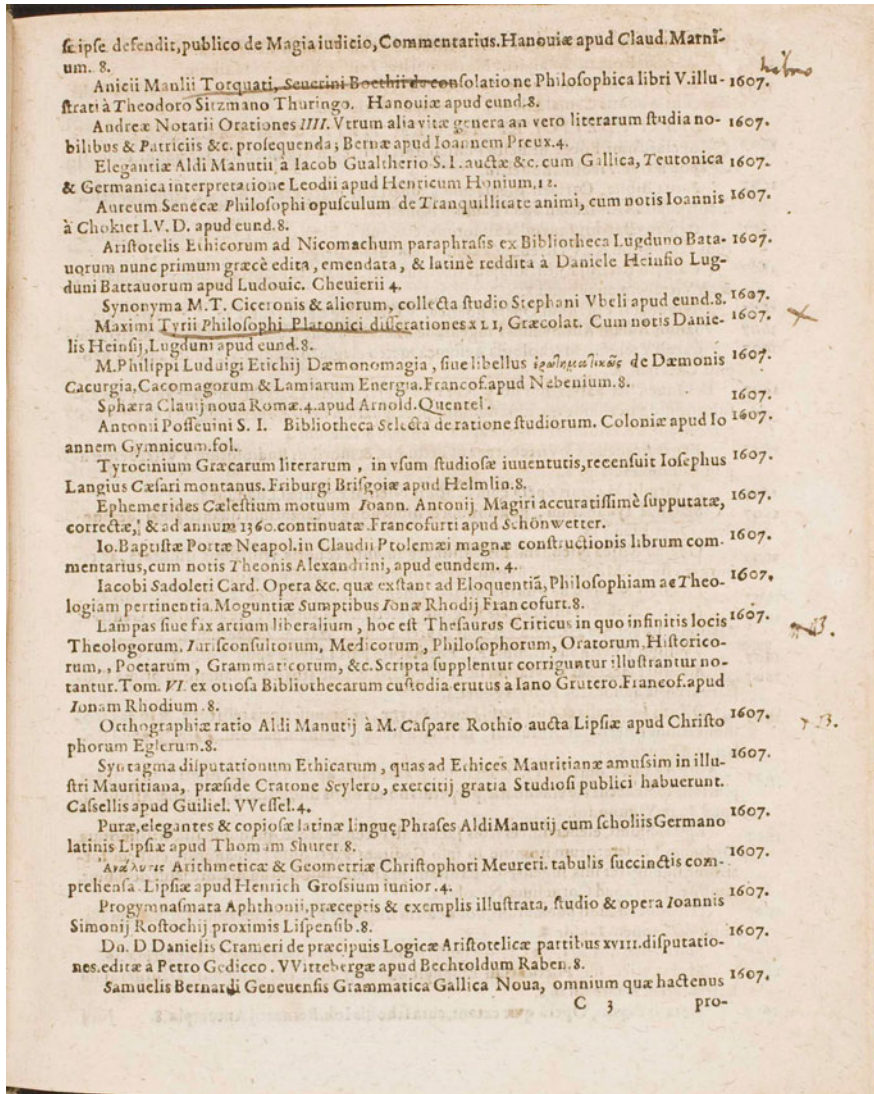 ſe ipſe defendit, publico de Magia iudicio, Commentarius. Hanouiæ apud Claud. Marni-
um. 8.
Anicii Manlii Torquati, Seuerini Boethii de conſolatione Philoſophica libri V. illu- 1607.
ſtrati à Theodoro Sitzmano Thuringo. Hanouiæ apud eund. 8.
Andreæ Notarii Orationes IIII. Vtrum alia vitæ genera an vero literarum ſtudia no- 1607.
bilibus & Patriciis &c. proſequenda; Bernæ apud Ioannem Preux. 4.
Elegantiæ Aldi Manutij à Iacob Gualtherio S. I. auctæ &c. cum Gallica, Teutonica 1607.
& Germanica interpretatione Leodii apud Henricum Honium, 12.
Aureum Senecæ Philoſophi opuſculum de Tranquillitate animi, cum notis Ioannis 1607.
à Chokier I. V. D. apud eund. 8.
Ariſtotelis Ethicorum ad Nicomachum paraphraſis ex Bibliotheca Lugduno Bata- 1607.
uorum nunc primum græcè edita, emendata, & latinè reddita à Daniele Heinſio Lug-
duni Battauorum apud Ludouic. Cheuierii 4.
Synonyma M. T. Ciceronis & aliorum, collecta ſtudio Stephani Vbeli apud eund. 8. 1607.
Maximi Tyrii Philoſophi Platonici diſſerationes xLI, Græcolat. Cum notis Danie- 1607.
lis Heinſij, Lugduni apud eund. 8.
M. Philippi Luduigi Etichij Dæmonomagia, ſiue libellus ἐρωτηματικῶς de Dæmonis 1607.
Cacurgia, Cacomagorum & Lamiarum Energia. Francof. apud Nebenium. 8.
Sphæra Clauij noua Romæ. 4. apud Arnold. Quentel. 1607.
Antonii Poſſeuini S. I. Bibliotheca Selecta de ratione ſtudiorum. Coloniæ apud Io 1607.
annem Gymnicum. fol.
Tyrocinium Græcarum literarum, in vſum ſtudioſæ iuuentutis, recenſuit Ioſephus 1607.
Langius Cæſari montanus. Friburgi Briſgoiæ apud Helmlin. 8.
Ephemerides Cæleſtium motuum Ioann. Antonij Magiri accuratiſſimè ſupputatæ, 1607.
correctæ, & ad annum 1360. continuatæ. Francofurti apud Schönwetter.
Io. Baptiſtæ Portæ Neapol. in Claudii Ptolemæi magnæ conſtructionis librum com- 1607.
mentarius, cum notis Theonis Alexandrini, apud eundem. 4.
Iacobi Sadoleti Card. Opera &c. quæ exſtant ad Eloquentiã, Philoſophiam ac Theo- 1607.
logiam pertinentia. Moguntiæ Sumptibus Ionæ Rhodij Francofurt. 8.
Lampas ſiue fax artium liberalium, hoc eſt Theſaurus Criticus in quo infinitis locis 1607.
Theologorum. Iuriſconſultorum, Medicorum, Philoſophorum, Oratorum, Hiſtorico-
rum,, Poetarum, Grammaticorum, &c. Scripta ſupplentur corriguntur illuſtrantur no-
tantur. Tom. VI. ex otioſa Bibliothecarum cuſtodia erutus à Iano Grutero. Francof. apud
Ionam Rhodium. 8.
Orthographiæ ratio Aldi Manutij à M. Caſpare Rothio aucta Lipſiæ apud Chriſto 1607.
phorum Eglerum. 8.
Syntagma diſputationum Ethicarum, quas ad Ethices Mauritianæ amuſsim in illu- 1607.
ſtri Mauritiana, præſide Cratone Scylero, exercitij gratia Studioſi publici habuerunt.
Caſſellis apud Guiliel. VVeſſel. 4.
Puræ, elegantes & copioſæ latinæ linguę Phraſes Aldi Manutij cum ſcholiis Germano 1607.
latinis Lipſiæ apud Thomam Shurer. 8.
Ἀνάλυσις Arithmeticæ & Geometriæ Chriſtophori Meureri. tabulis ſuccinctis com- 1607.
prehenſa. Lipſiæ apud Henrich Groſsium iunior. 4.
Progymnaſmata Aphthonii, præceptis & exemplis illuſtrata, ſtudio & opera Ioannis 1607.
Simonij Roſtochij proximis Liſpenſib. 8.
Dn. D Danielis Crameri de præcipuis Logicæ Ariſtotelicæ partibus xviii. diſputatio- 1607.
nes. editæ à Petro Gedicco. VVittebergæ apud Bechtoldum Raben. 8.
Samuelis Bernardi Geneuenſis Grammatica Gallica Noua, omnium quæ hactenus 1607.
C 3 pro-